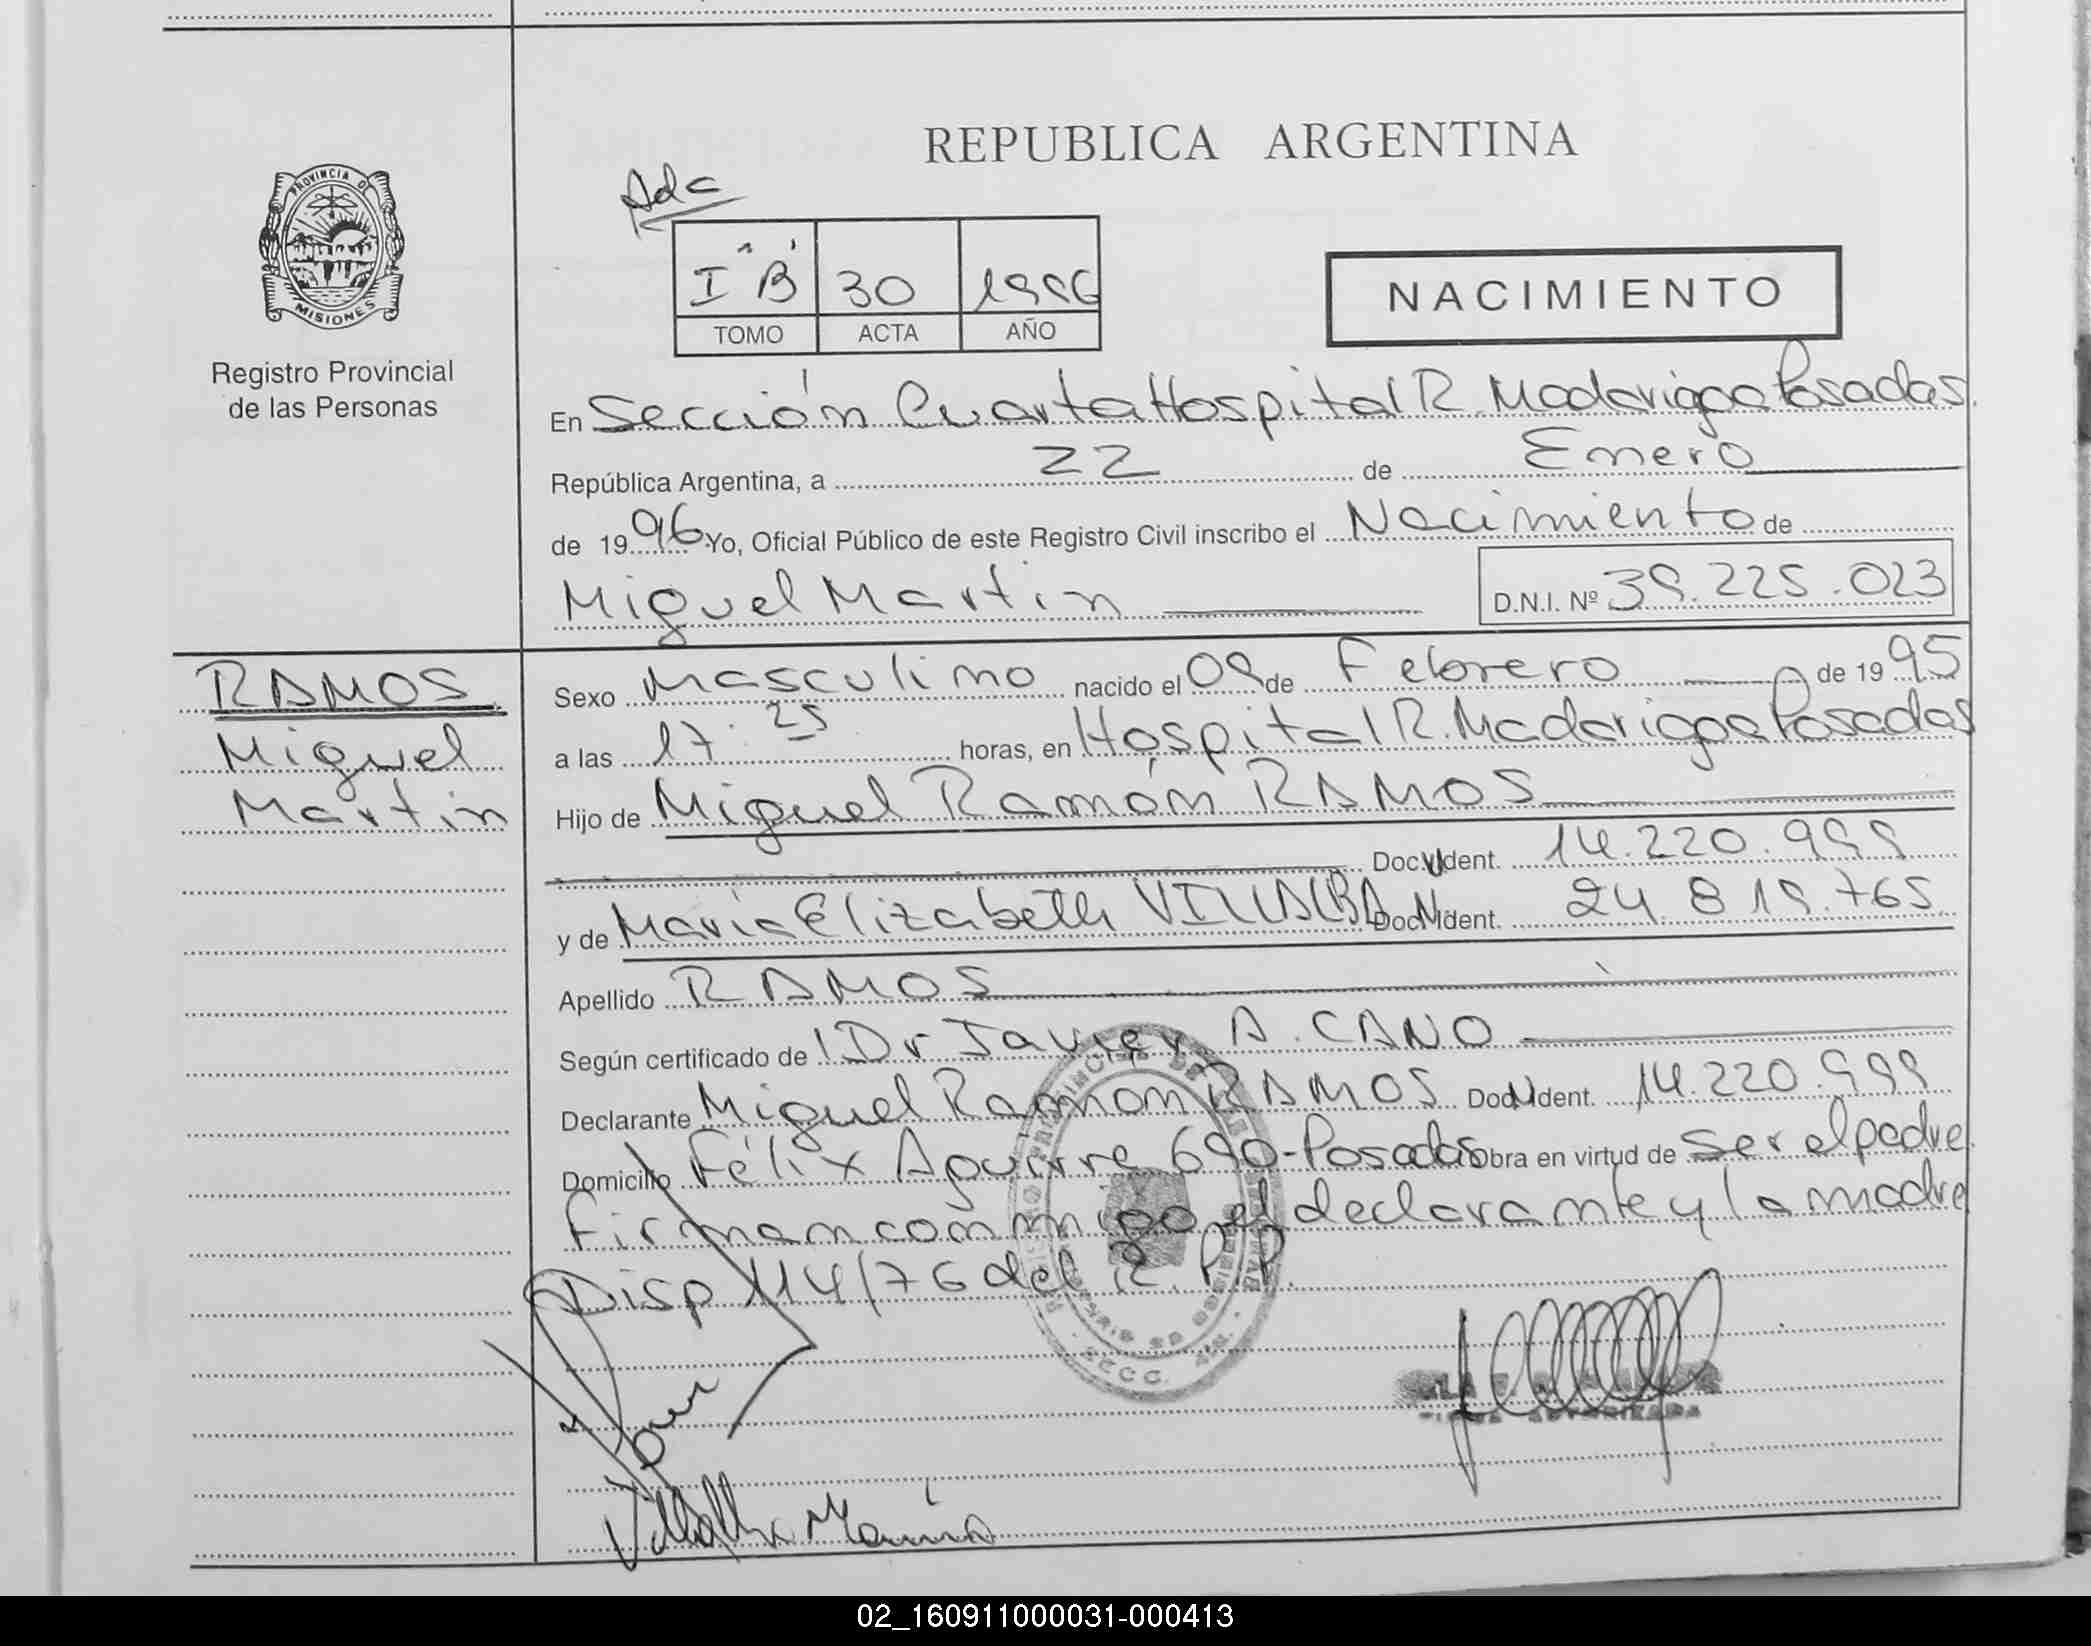 REPUBLICA ARGENTINA
PROVINCIA D
MISIONES
Registro Provincial
de las Personas
Adc
I "B" 30 1996
TOMO ACTA AÑO
NACIMIENTO
En Sección Cuarta Hospital R. Madariaga Posadas.
República Argentina, a 22 de Enero
de 1996 Yo, Oficial Público de este Registro Civil inscribo el Nacimiento de
Miguel Martin D.N.I. Nº 39.225.023
RAMOS
Miguel
Martin
Sexo Masculino nacido el 09 de Febrero de 1995
a las 17:25 horas, en Hospital R. Madariaga Posadas
Hijo de Miguel Ramón RAMOS
Doc. Ident. 14.220.999
y de María Elizabeth VILLALBA Doc. Ident. 24.819.765
Apellido RAMOS
Según certificado de Dr Javier A. CANO
Declarante Miguel Ramon RAMOS Doc. Ident. 14.220.999
Domicilio Félix Aguirre 690-Posadas Obra en virtud de Ser el padre.
Firman conmigo el declarante y la madre
Disp 114/76 del R. P. P.
Villalba María
02_160911000031-000413